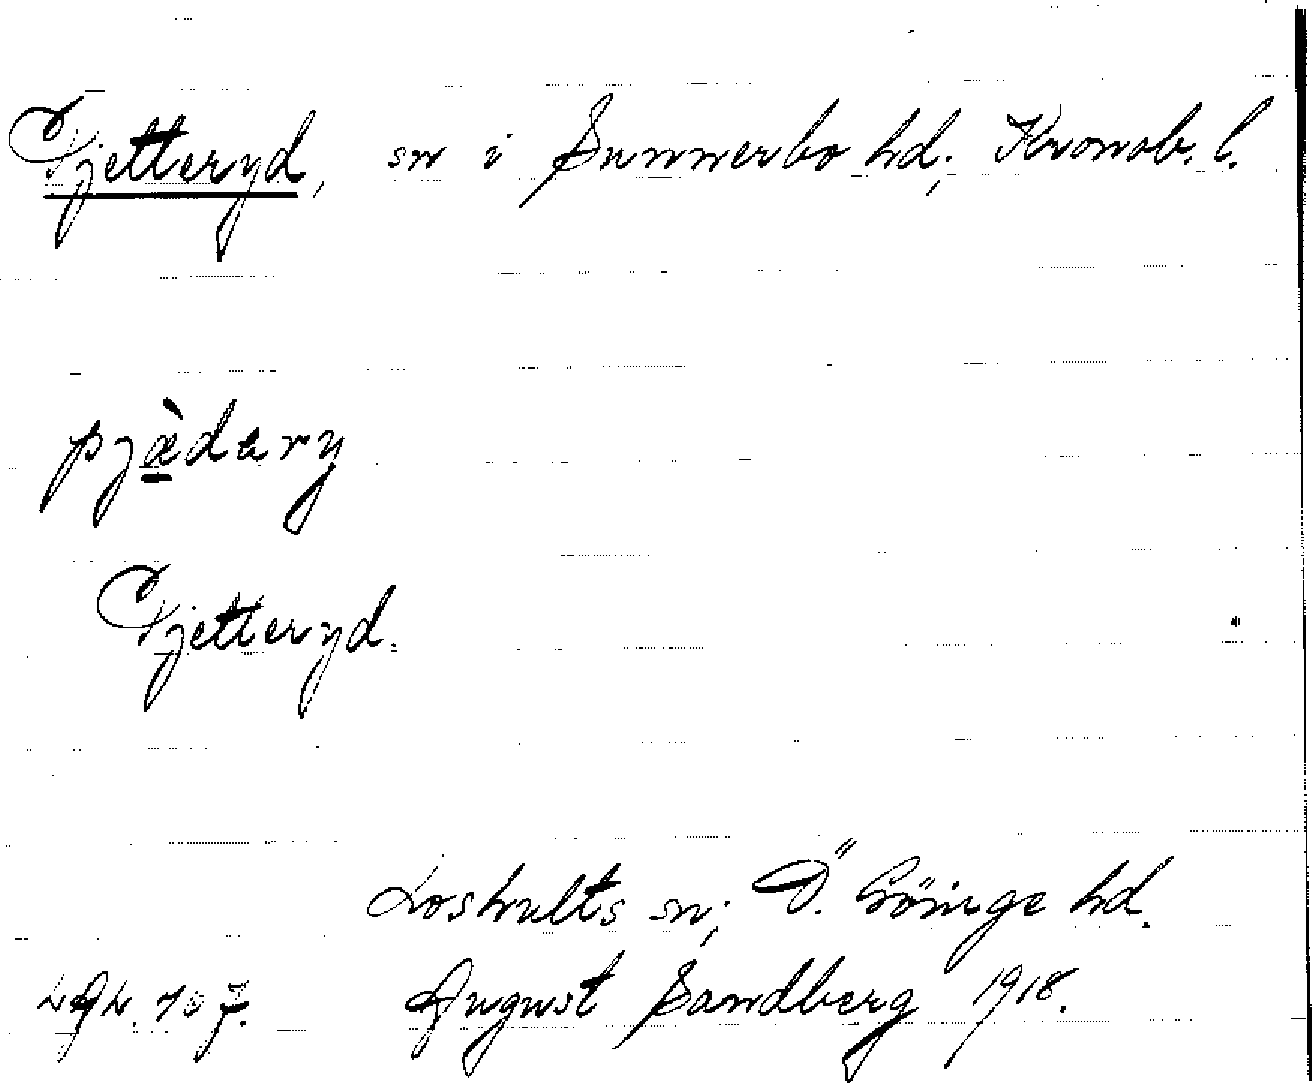 Pjetteryd, sn i Sunnerbo hd, Kronob. l.
pjæ̀dary
Pjetteryd.
Loshults sn, Ö. Göinge hd.
August Sandberg 1918.